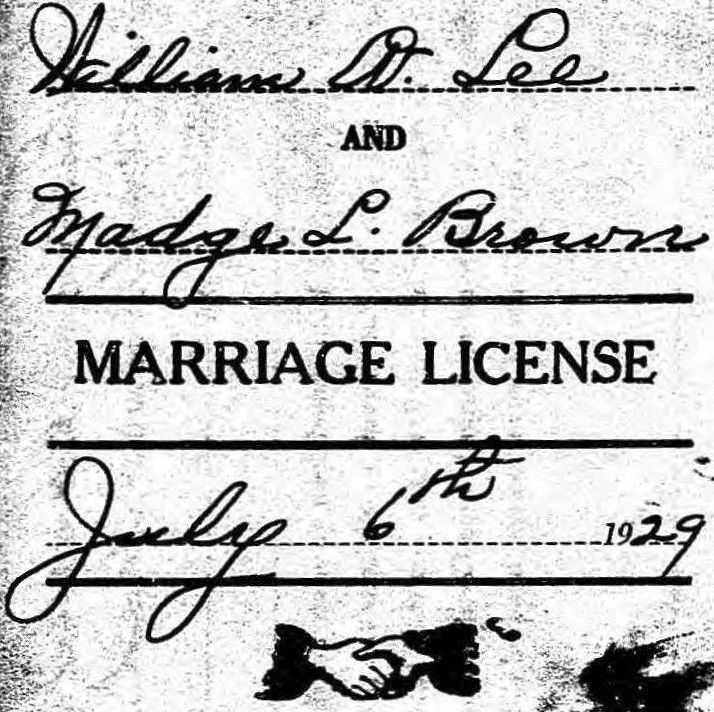 William D. Lee
AND
Madge L. Brown
MARRIAGE LICENSE
July 6th 1929